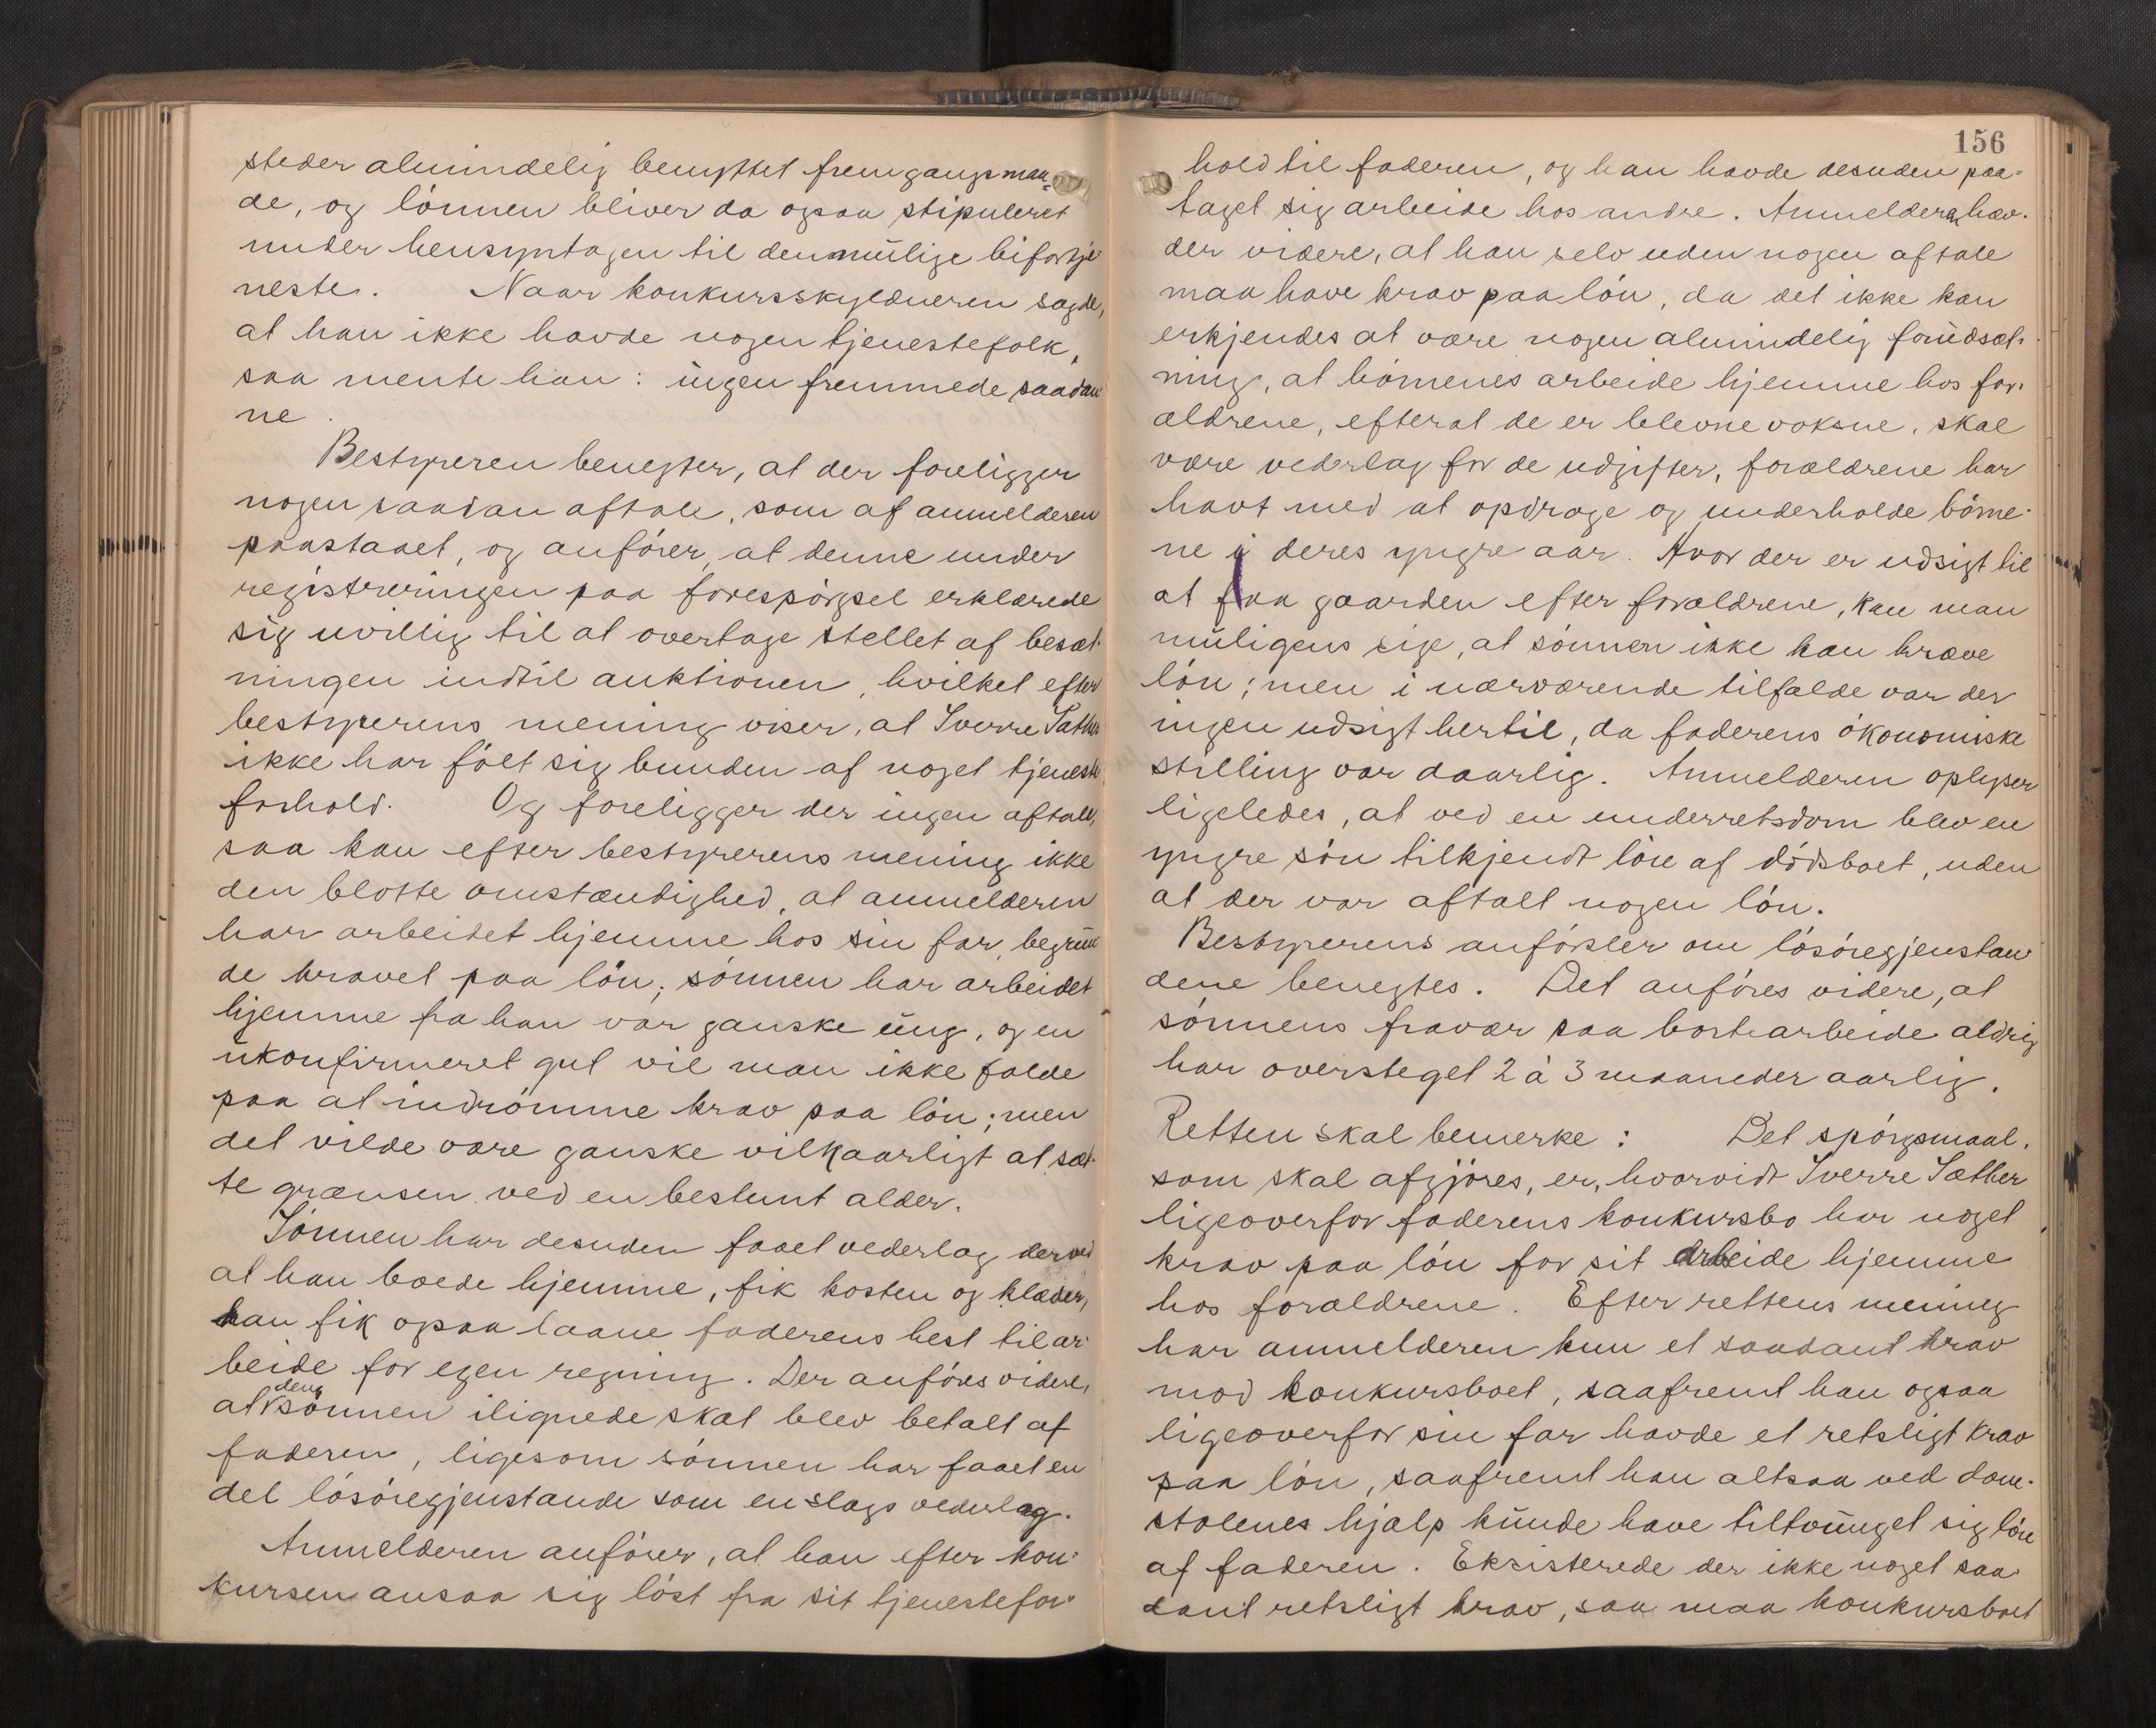 steder almindelig benyttet fremgangsmaa-
de, og lönnen bliver da ogsaa stipuleret
under hensyntagen til den mülige bifortje-
neste. Naar konkursskyldneren sagde,
at han ikke havde nogen tjenestefolk,
saa mente han: ingen fremmede saadan-
ne.
Bestyreren benegter, at der foreligger
nogen saadan aftale, som af anmelderen
paastaaet, og anförer, at denne under
registreringen paa forespörgsel erklærede
sig uvillig til at overtage stellet af besæt-
ningen indtil auktionen, hvilket efter
bestyrerens mening viser, at Sverre Sæther
ikke har fölt sig bunden af noget tjeneste
forhold. Og foreligger der ingen aftale,
saa kan efter bestyrerens mening ikke
den blotte omstændighed, at anmelderen
har arbeidet hjemme hos sin far, begrün-
de kravet paa lön; sönnen har arbeidet
hjemme fra han var ganske üng, og en
ükonfirmeret gut vil man ikke falde
paa at indrömme krav paa lön; men
det vilde være ganske vilkaarligt at sæt-
te grænsen ved en bestemt alder.
Sönnen har desuden faaet vederlag derved
at han boede hjemme, fik kosten og klæder,
han fik ogsaa laane faderens hest til ar-
beide for egen regning. Der anföres videre,
at den sönnen ilignede skat blev betalt af
faderen, ligesom sönnen har faaet en
del lösöregjenstande som en slags vederlag.
Anmelderen anförer, at han efter kon-
kursen ansaa sig löst fra sit tjenestefor-
156
hold til faderen, og han havde desuden paa-
taget sig arbeide hos andre. Anmelderen hæv-
der videre, at han selv uden nogen aftale
maa have krav paa lön, da det ikke kan
erkjendes at være nogen almindelig forüdsæt-
ning, at börnenes arbeide hjemme hos for-
ældrene, efterat de er blevne voksne, skal
være vederlag for de udgifter, forældrene har
havt med at opdrage og underholde börne-
ne i deres yngre aar. Hvor der er udsigt til
at faa gaarden efter forældrene, kan man
müligens sige, at sönnen ikke kan kræve
lön; men i nærværende tilfælde var der
ingen udsigt hertil, da faderens ökonomiske
stilling var daarlig. Anmelderen oplyser
ligeledes, at ved en underretsdom blev en
yngre sön tilkjendt lön af dödsboet, uden
at der var aftalt nogen lön.
Bestyrerens anförsler om lösöregjenstan-
dene benegtes. Det anföres videre, at
sönnens fravær paa bortearbeide aldrig
har oversteget 2 à 3 maaneder aarlig.
Retten skal bemerke: Det spörgsmaal,
som skal afgjöres, er, hvorvidt Sverre Sæther
ligeoverfor faderens konkursbo har noget
krav paa lön for sit arbeide hjemme
hos forældrene. Efter rettens mening
har anmelderen kun et saadant krav
mod konkursboet, saafremt han ogsaa
ligeoverfor sin far havde et retsligt krav
paa lön, saafremt han altsaa ved dom-
stolenes hjælp künde have tiltvünget sig lön
af faderen. Eksisterede der ikke noget saa-
dant retsligt krav, saa maa konkursboet